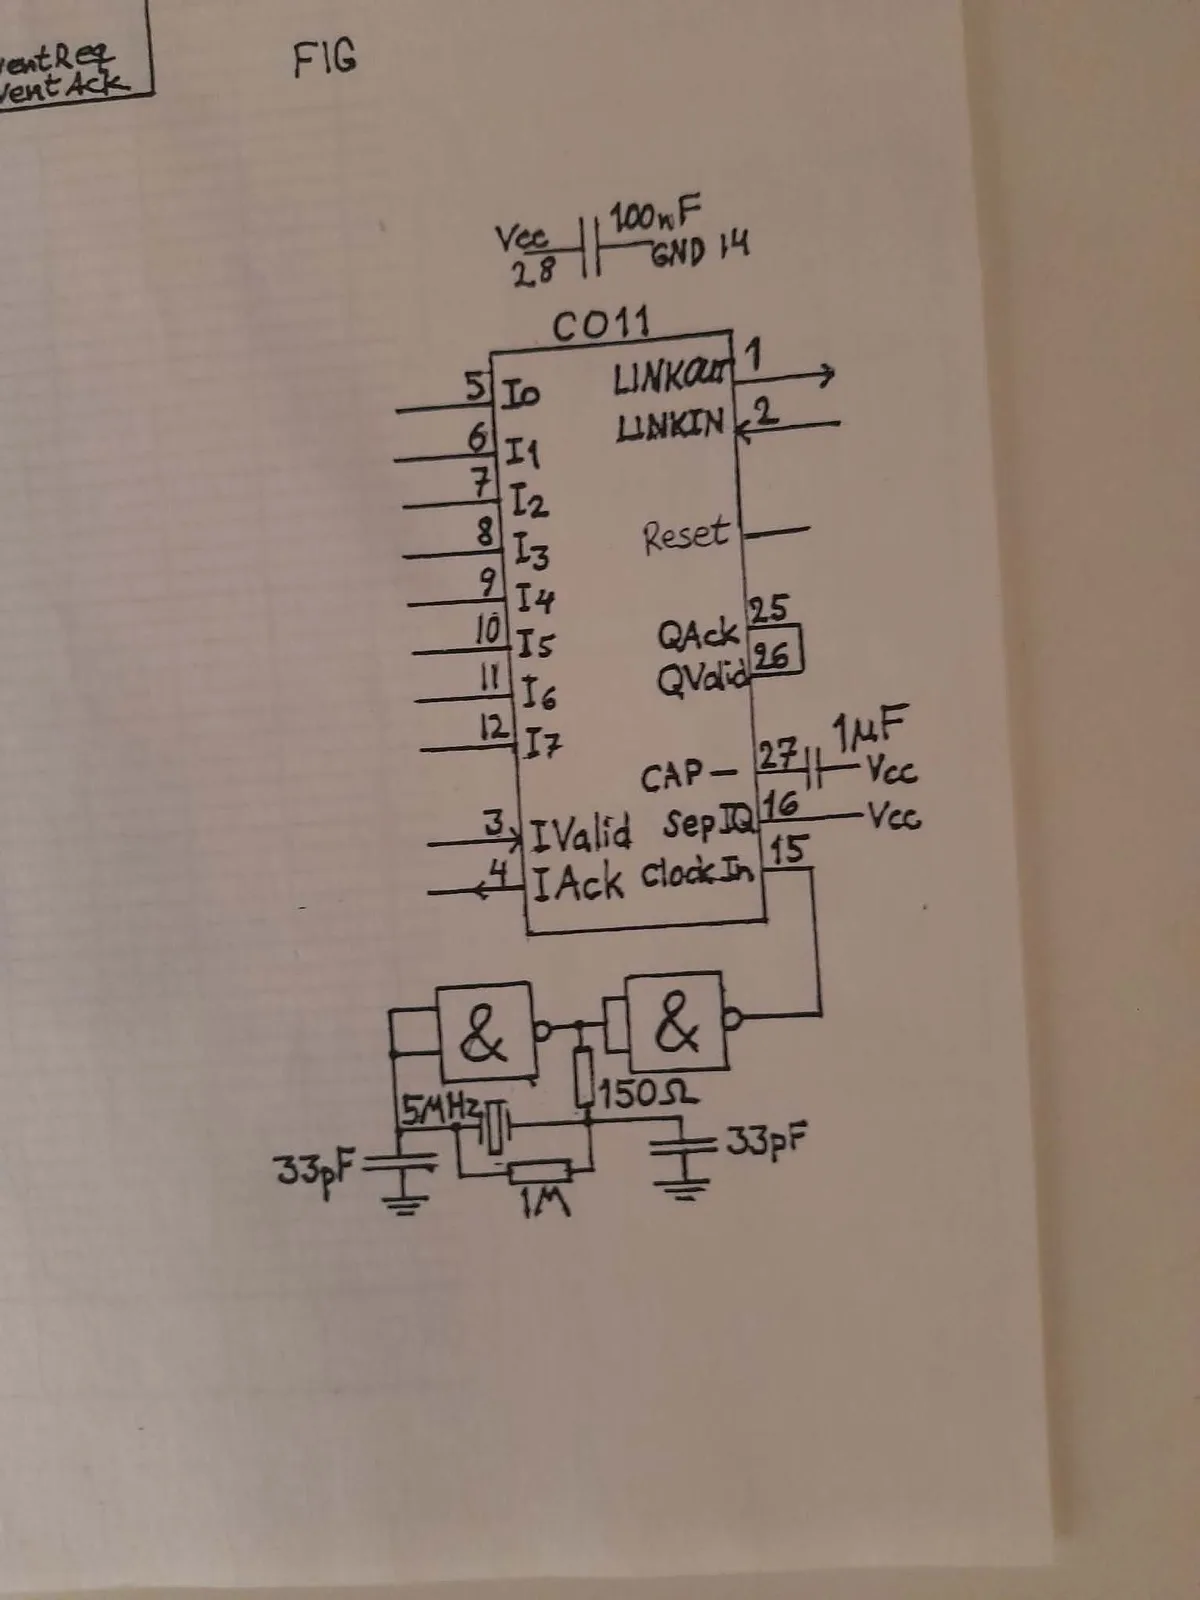 ventReq
ventAck
FIG
Vcc
28
100nF
GND 14
CO11
5 I0
6 I1
7 I2
8 I3
9 I4
10 I5
11 I6
12 I7
3 IValid
4 IAck
LINKOUT 1
LINKIN 2
Reset
QAck 25
QValid 26
CAP- 27
1µF
Vcc
SepIQ 16
Vcc
ClockIn 15
&
&
150Ω
5MHz
33pF
33pF
1M